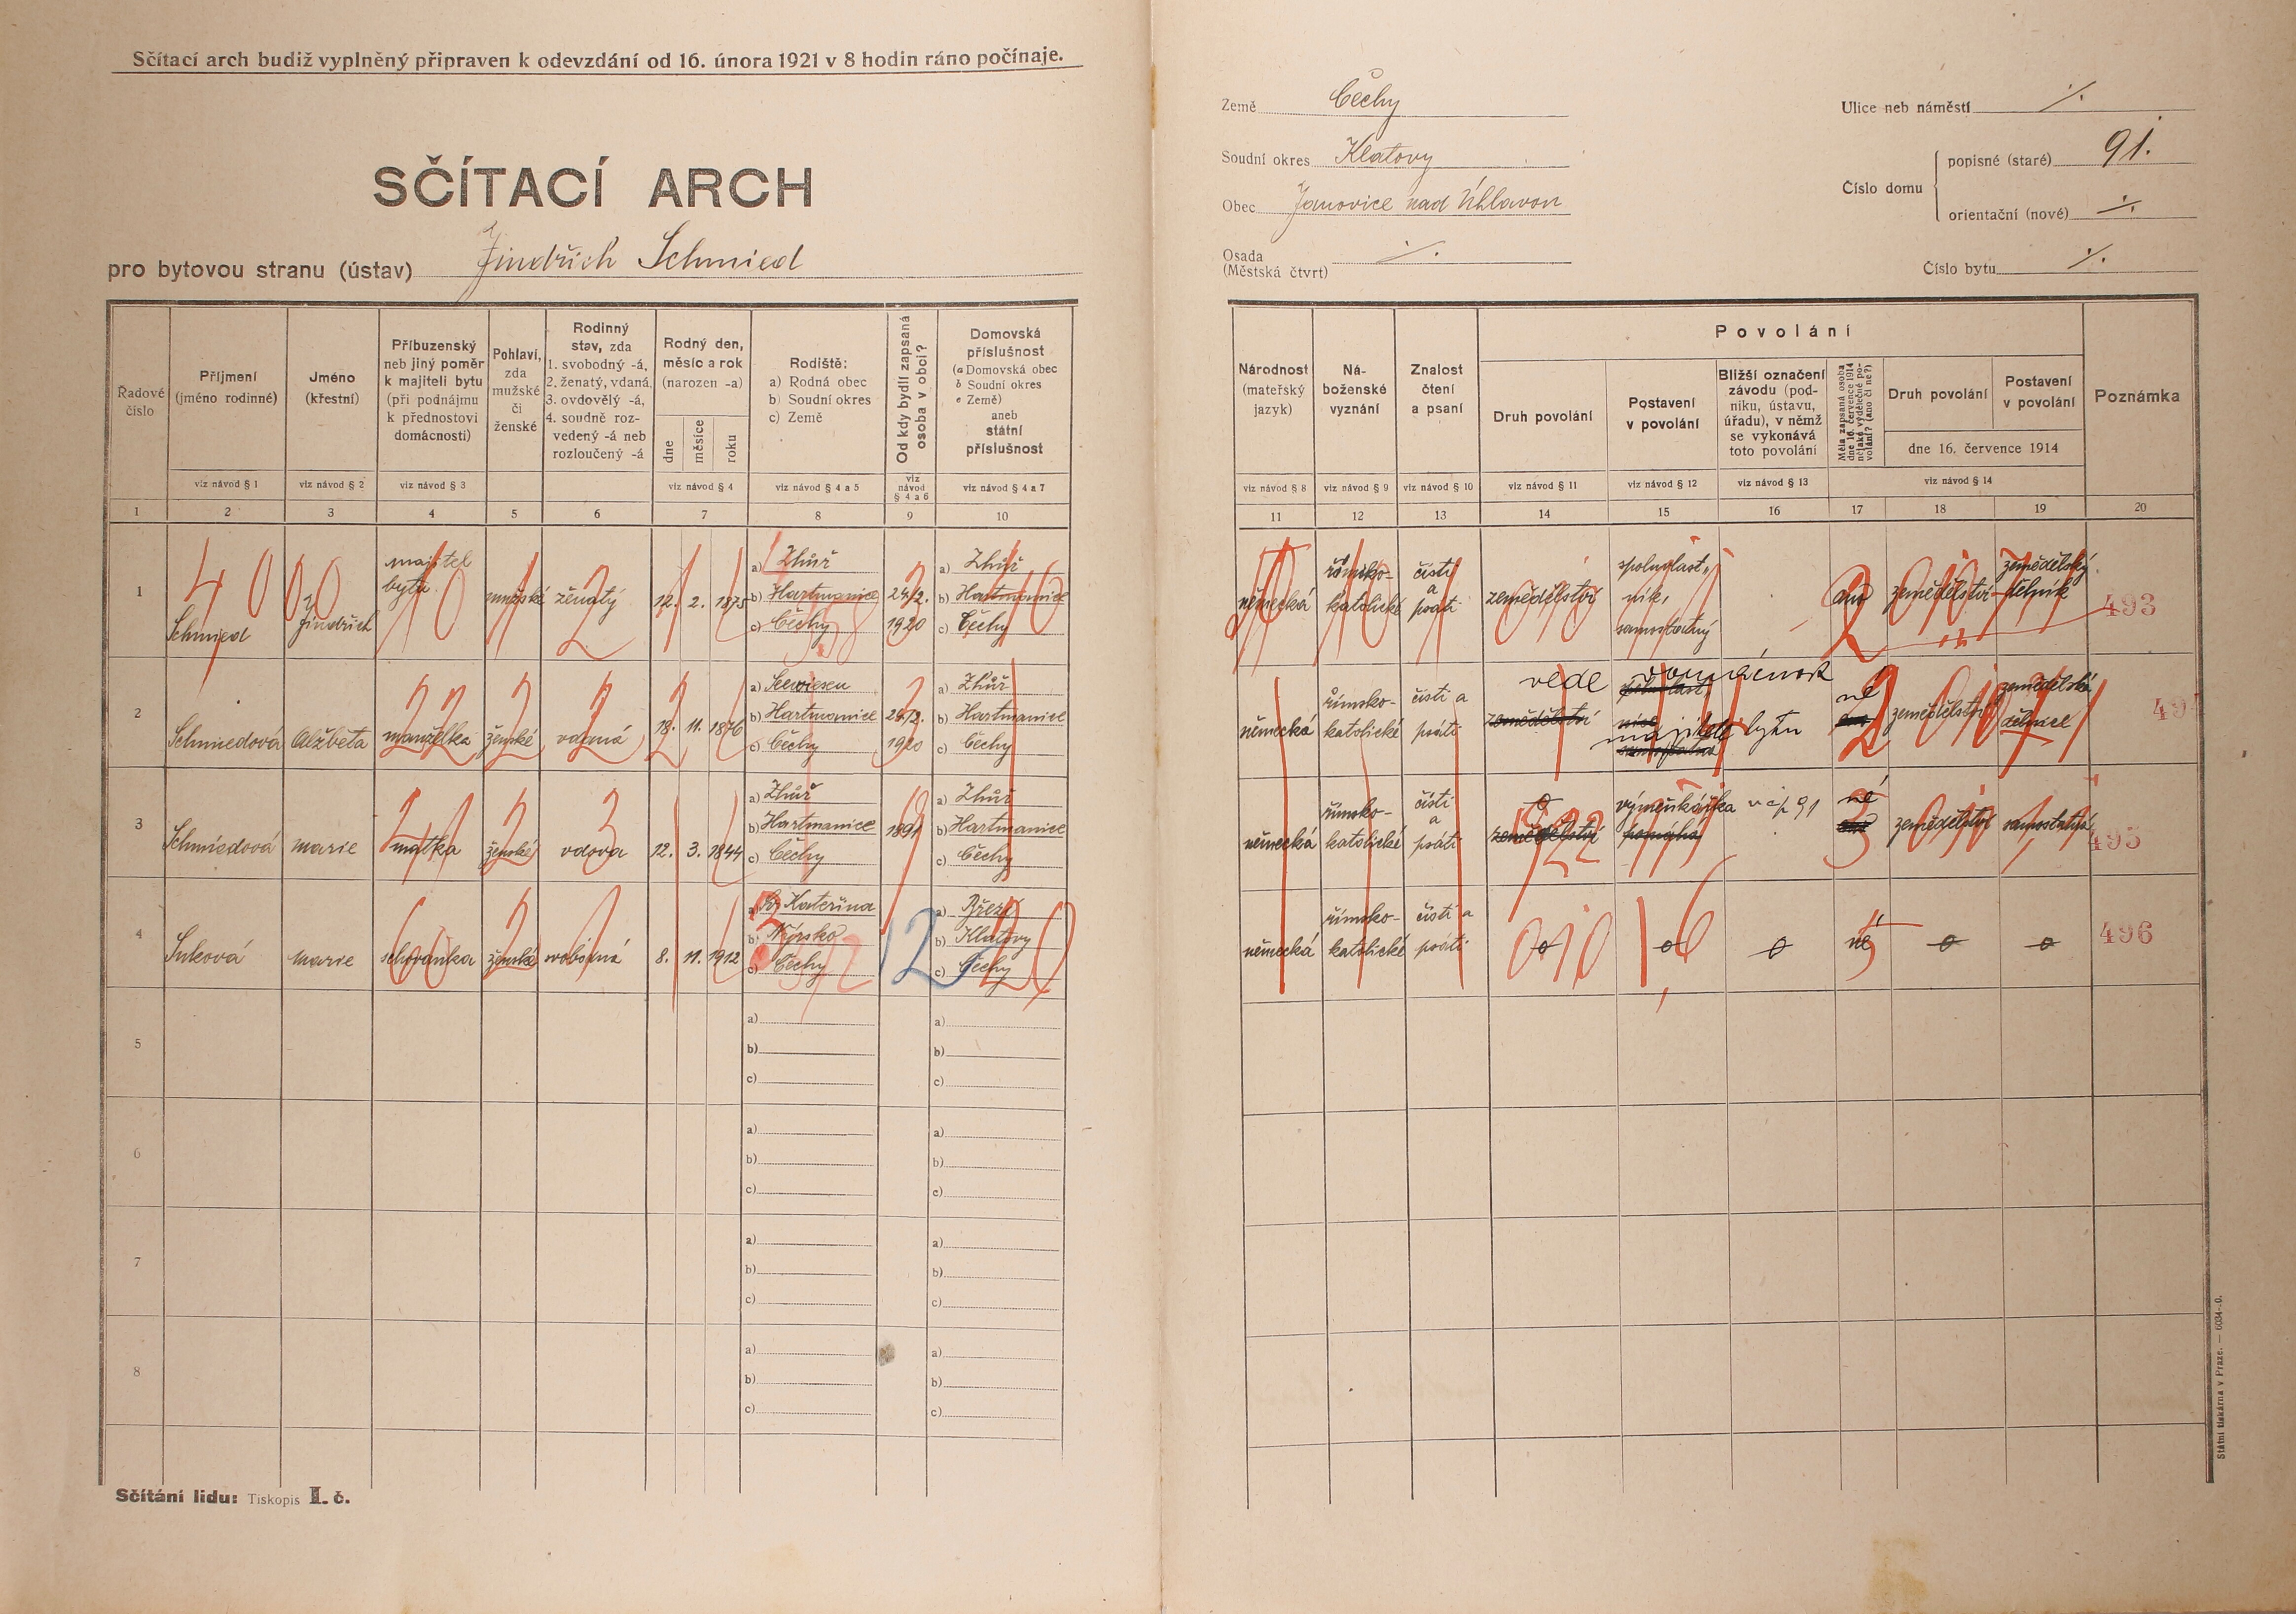 Sčítací arch budiž vyplněný připraven k odevzdání od 16. února 1921 v 8 hodin ráno počínaje.
SČÍTACÍ ARCH
pro bytovou stranu (ústav) Jindřich Schmied
Země Čechy
Soudní okres Klatovy
Obec Janovice nad Úhlavou
Osada
(Městská čtvrt) ·/.
Ulice neb náměstí ·/.
Číslo domu
popisné (staré) 91.
orientační (nové) ·/.
Číslo bytu ·/.
Řadové číslo
Příjmení (jméno rodinné)
Jméno (křestní)
Příbuzenský neb jiný poměr k majiteli bytu (při podnájmu k přednostovi domácnosti)
Pohlaví, zda mužské či ženské
Rodinný stav, zda 1. svobodný -á, 2. ženatý, vdaná, 3. ovdovělý -á, 4. soudně rozvedený -á neb rozloučený -á
Rodný den, měsíc a rok (narozen -a)
dne měsíce roku
Rodiště:
a) Rodná obec
b) Soudní okres
c) Země
Od kdy bydlí zapsaná osoba v obci?
Domovská příslušnost
(a Domovská obec
b Soudní okres
c Země)
aneb
státní
příslušnost
viz návod § 1 viz návod § 2 viz návod § 3 viz návod § 4 viz návod § 4 a 5 viz návod § 4 a 6 viz návod § 4 a 7
1 2 3 4 5 6 7 8 9 10
Národnost (mateřský jazyk)
Náboženské vyznání
Znalost čtení a psaní
Povolání
Druh povolání
Postavení v povolání
Bližší označení závodu (podniku, ústavu, úřadu), v němž se vykonává toto povolání
Měla zapsaná osoba dne 16. července 1914 nějaké výdělečné povolání? (ano či ne?)
Druh povolání
Postavení v povolání
dne 16. července 1914
Poznámka
viz návod § 8 viz návod § 9 viz návod § 10 viz návod § 11 viz návod § 12 viz návod § 13 viz návod § 14
11 12 13 14 15 16 17 18 19 20
1 Schmied Jindřich majitel bytu mužské ženatý 12. 2. 1875
a) Zhůř
b) Hartmanice
c) Čechy
24/2. 1920
a) Zhůř
b) Hartmanice
c) Čechy
německá římsko-katolické čísti a psáti zemědělství spoluvlast-ník, samostatný ano zemědělství zemědělský dělník 493
2 Schmiedová Alžběta manželka ženské vdaná 18. 11. 1876
a) Seewiesen
b) Hartmanice
c) Čechy
24/2. 1920
a) Zhůř
b) Hartmanice
c) Čechy
německá římsko-katolické čísti a psáti zemědělství vede domácnost majitele bytu ne zemědělství zemědělská dělnice 49
3 Schmiedová Marie matka ženské vdova 12. 3. 1844
a) Zhůř
b) Hartmanice
c) Čechy
1891
a) Zhůř
b) Hartmanice
c) Čechy
německá římsko-katolické čísti a psáti zemědělství výměnkářka v čp 91 ne zemědělství samostatná 495
4 Suková Marie schovanka ženské svobodná 8. 11. 1912
a) Sv. Kateřina
b) Nýrsko
c) Čechy
a) Březí
b) Klatovy
c) Čechy
německá římsko-katolické čísti a psáti o o o ne o o 496
5
a)
b)
c)
a)
b)
c)
6
a)
b)
c)
a)
b)
c)
7
a)
b)
c)
a)
b)
c)
8
a)
b)
c)
a)
b)
c)
Sčítání lidu: Tiskopis I. č.
Státní tiskárna v Praze. — 6034-.0.